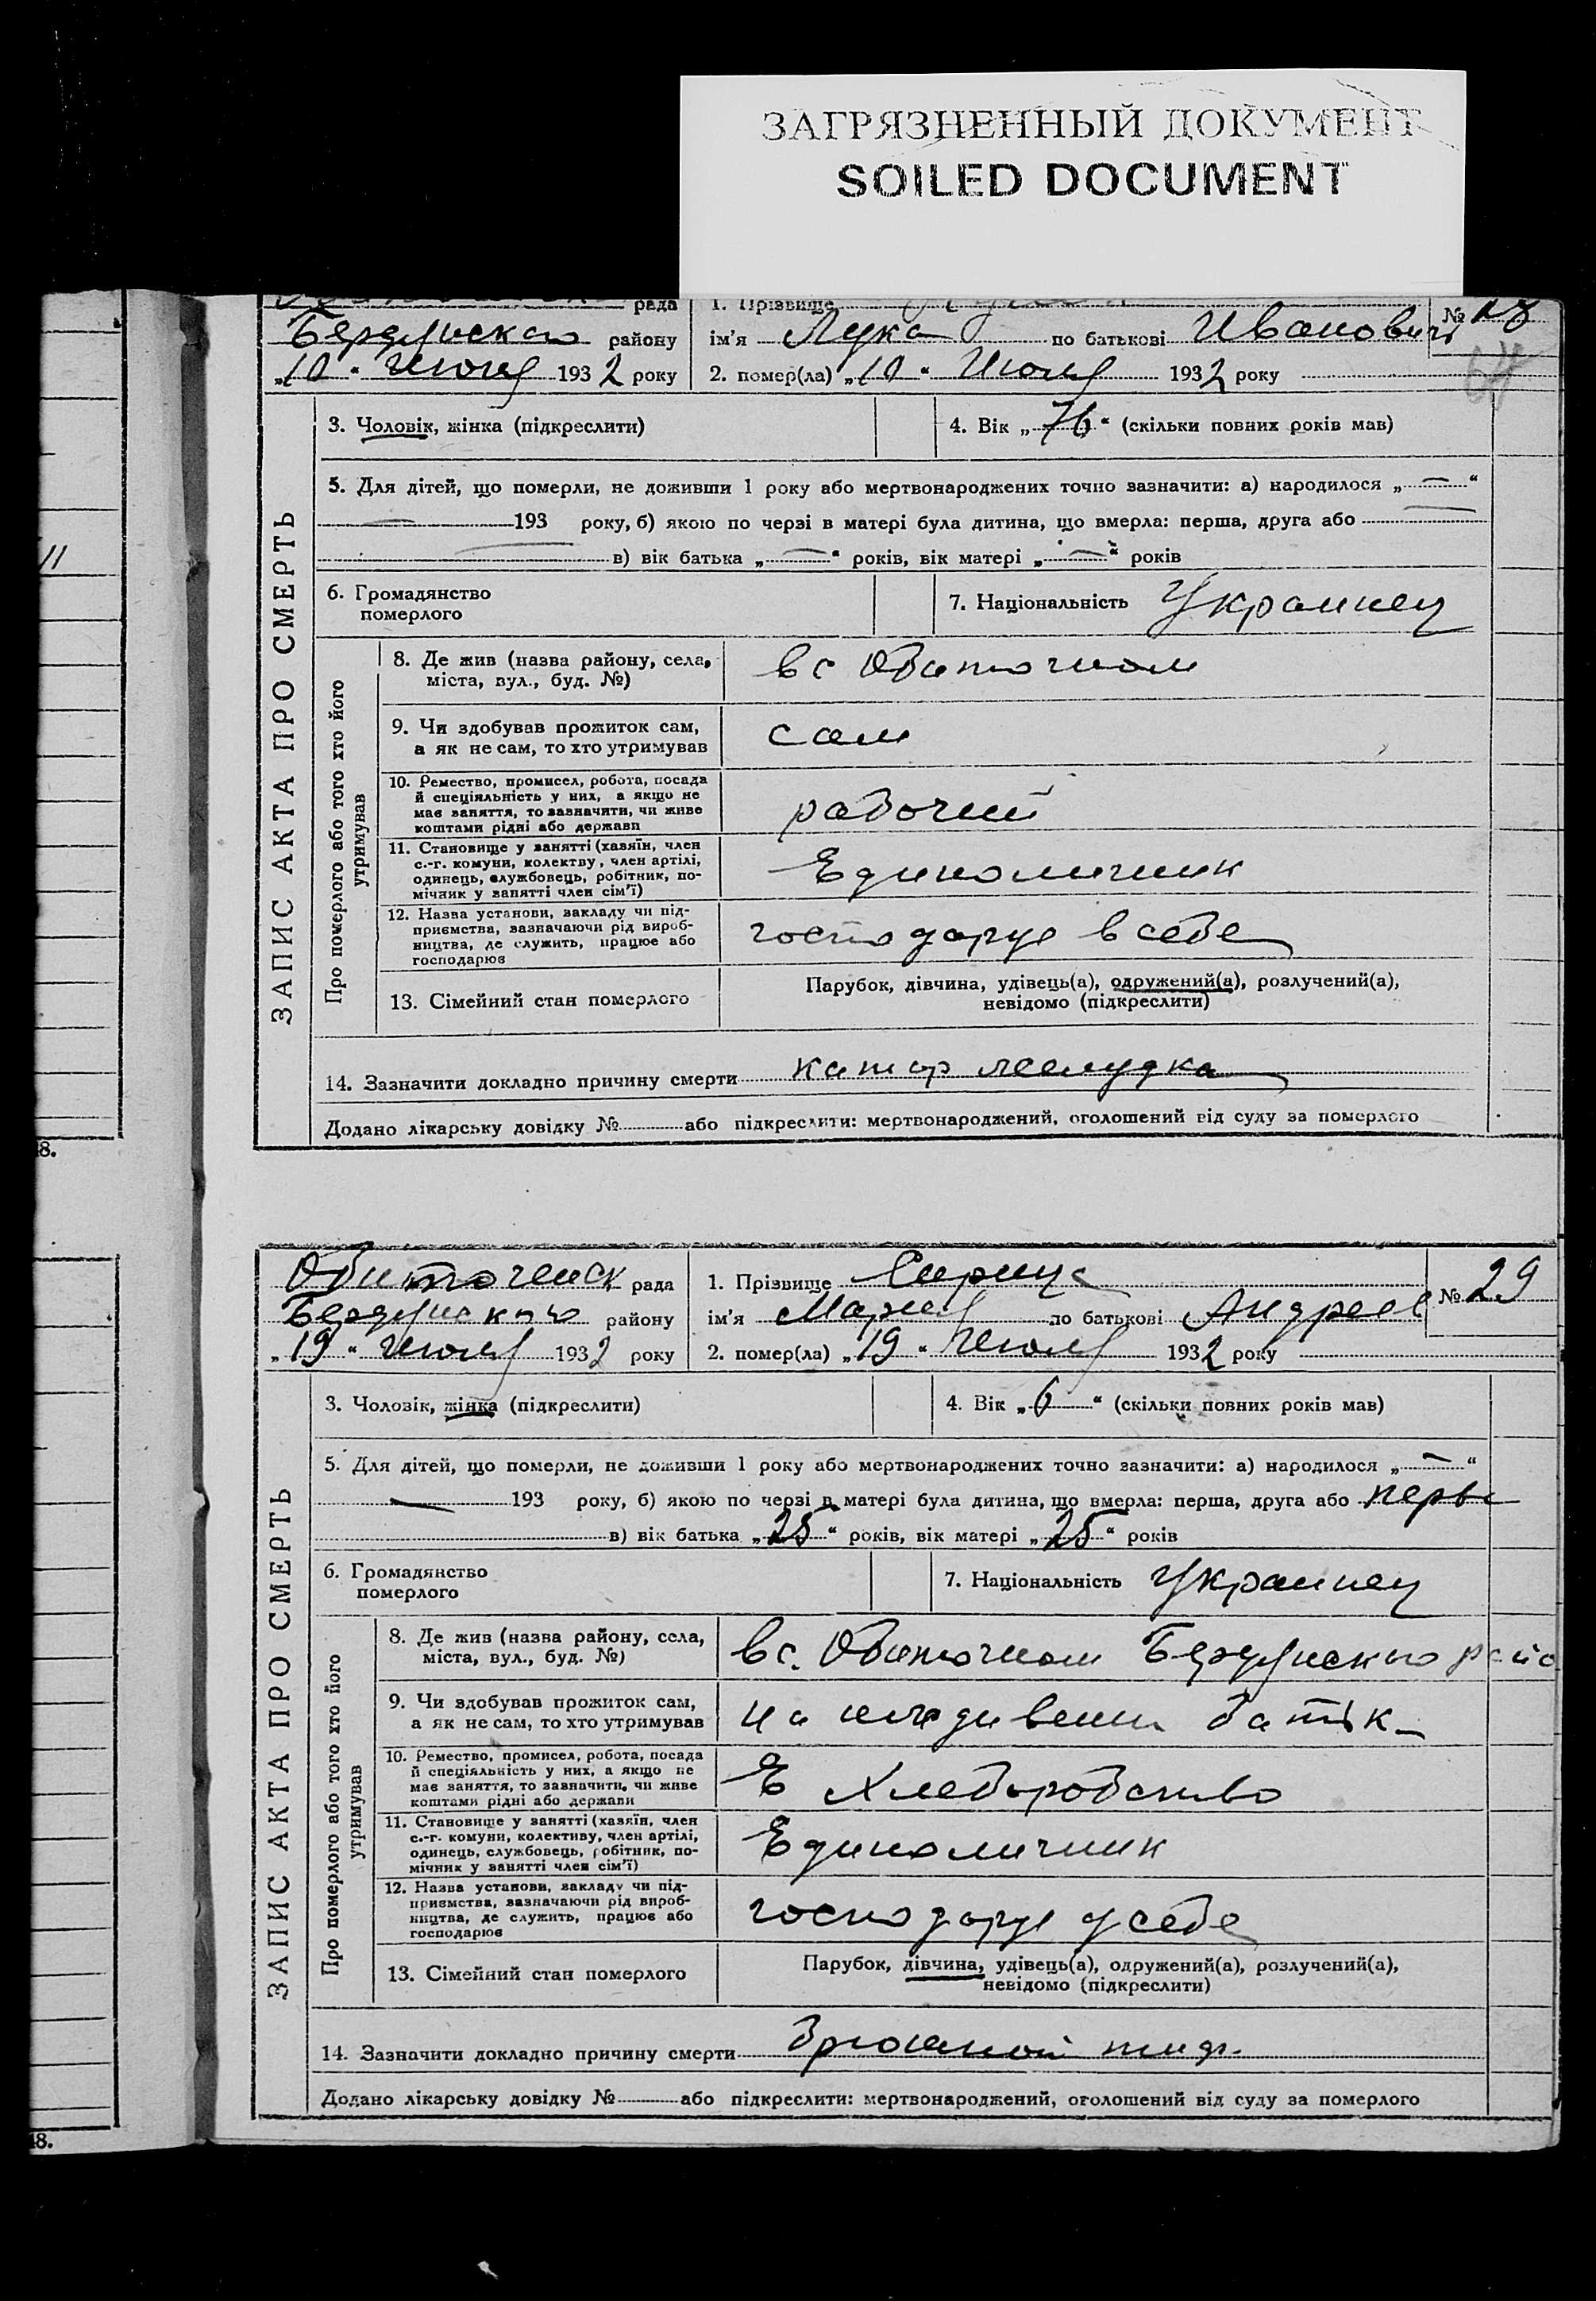 ЗАГРЯЗНЕННЫЙ ДОКУМЕНТ
SOILED DOCUMENT
рада
1. Прізвище
№ 28
Бердянского району
ім'я Лука по батькові Иванович
„10“ Июля 1932 року
2. помер(ла) „10“ Июля 1932 року
ЗАПИС АКТА ПРО СМЕРТЬ
3. Чоловік, жінка (підкреслити)
4. Вік „76“ (скільки повних років мав)
5. Для дітей, що померли, не доживши 1 року або мертвонароджених точно зазначити: а) народилося „—“
— 193 року, б) якою по черзі в матері була дитина, що вмерла: перша, друга або —
— в) вік батька „—“ років, вік матері „—“ років
6. Громадянство
померлого
7. Національність Украинец
Про померлого або того хто його
утримував
8. Де жив (назва району, села,
міста, вул., буд. №)
в с Обиточном
9. Чи здобував прожиток сам,
а як не сам, то хто утримував
сам
10. Ремество, промисел, робота, посада
й спеціяльність у них, а якщо не
має заняття, то зазначити, чи живе
коштами рідні або держави
рабочий
11. Становище у занятті (хазяїн, член
с.-г. комуни, колектву, член артілі,
одинець, службовець, робітник, по-
мічник у занятті член сім'ї)
Единоличник
12. Назва установи, закладу чи під-
приємства, зазначаючи рід вироб-
ництва, де служить, працює або
господарює
господарує в себе
13. Сімейний стан померлого
Парубок, дівчина, удівець(а), одружений(а), розлучений(а),
невідомо (підкреслити)
14. Зазначити докладно причину смерти катар желудка
Додано лікарську довідку № або підкреслити: мертвонароджений, оголошений від суду за померлого
8.
Обиточенск рада
1. Прізвище
№ 29
Бердянского району
ім'я Мария по батькові Андреев
„19“ Июля 1932 року
2. помер(ла) „19“ Июля 1932 року
ЗАПИС АКТА ПРО СМЕРТЬ
3. Чоловік, жінка (підкреслити)
4. Вік „6“ (скільки повних років мав)
5. Для дітей, що померли, не доживши 1 року або мертвонароджених точно зазначити: а) народилося „—“
— 193 року, б) якою по черзі в матері була дитина, що вмерла: перша, друга або перва
в) вік батька „25“ років, вік матері „25“ років
6. Громадянство
померлого
7. Національність Украинец
Про померлого або того хто його
утримував
8. Де жив (назва району, села,
міста, вул., буд. №)
в с. Обиточном Бердянского райо
9. Чи здобував прожиток сам,
а як не сам, то хто утримував
на иждивении батьк
10. Ремество, промисел, робота, посада
й спеціяльність у них, а якщо не
має заняття, то зазначити, чи живе
коштами рідні або держави
Хлеборобство
11. Становище у занятті (хазяїн, член
с.-г. комуни, колективу, член артілі,
одинець, службовець, робітник, по-
мічник у занятті член сім'ї)
Единоличник
12. Назва установи, закладу чи під-
приємства, зазначаючи рід вироб-
ництва, де служить, працює або
господарює
господарує у себе
13. Сімейний стан померлого
Парубок, дівчина, удівець(а), одружений(а), розлучений(а),
невідомо (підкреслити)
14. Зазначити докладно причину смерти брюшной тиф.
Додано лікарську довідку № або підкреслити: мертвонароджений, оголошений від суду за померлого
18.